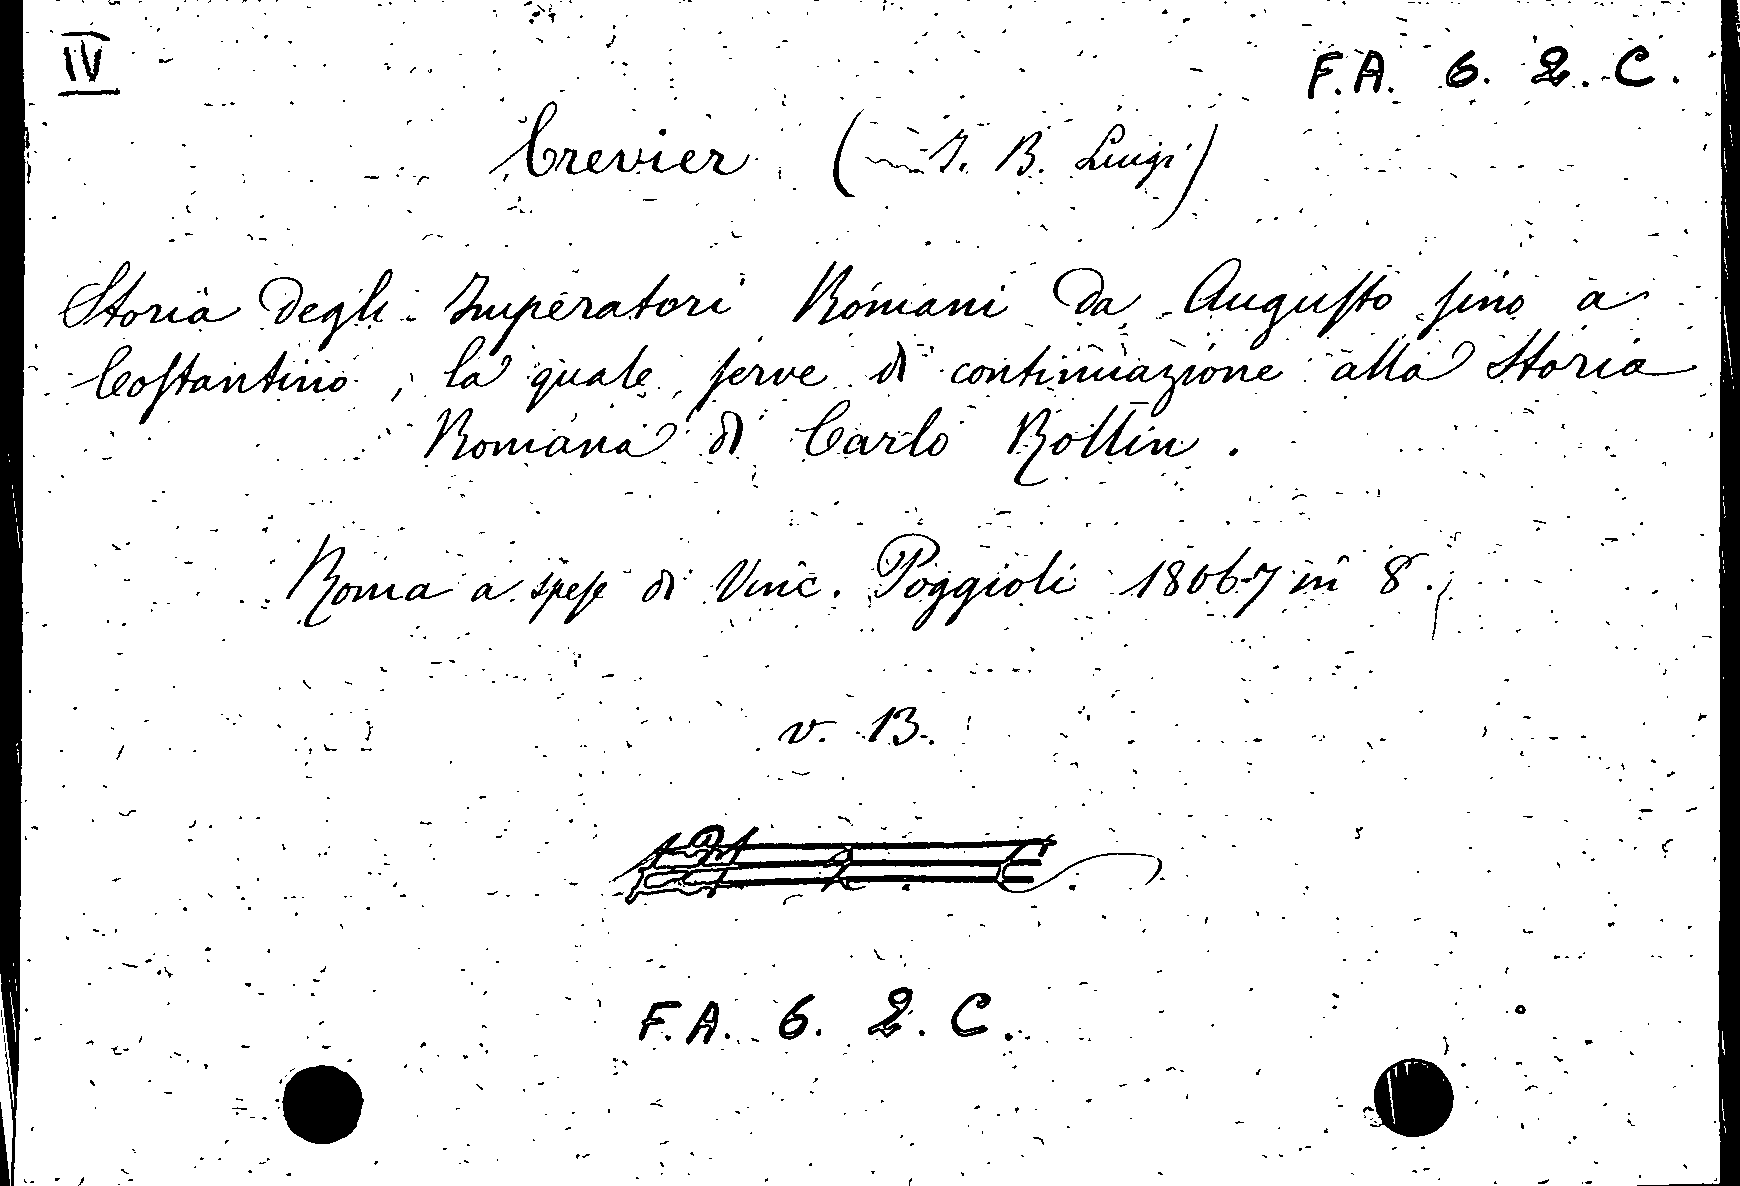 IV
F.A. 6. 2. C.
Crevier (J. B. Luigi)
Storia degli Imperatori Romani da Augusto sino a
Costantino, la quale serve di continuazione alla Storia
Romana di Carlo Rollin.
Roma a spese di Vinc. Poggioli 1806-7 in 8.
v. 13.
F.A. 6. 2. C.